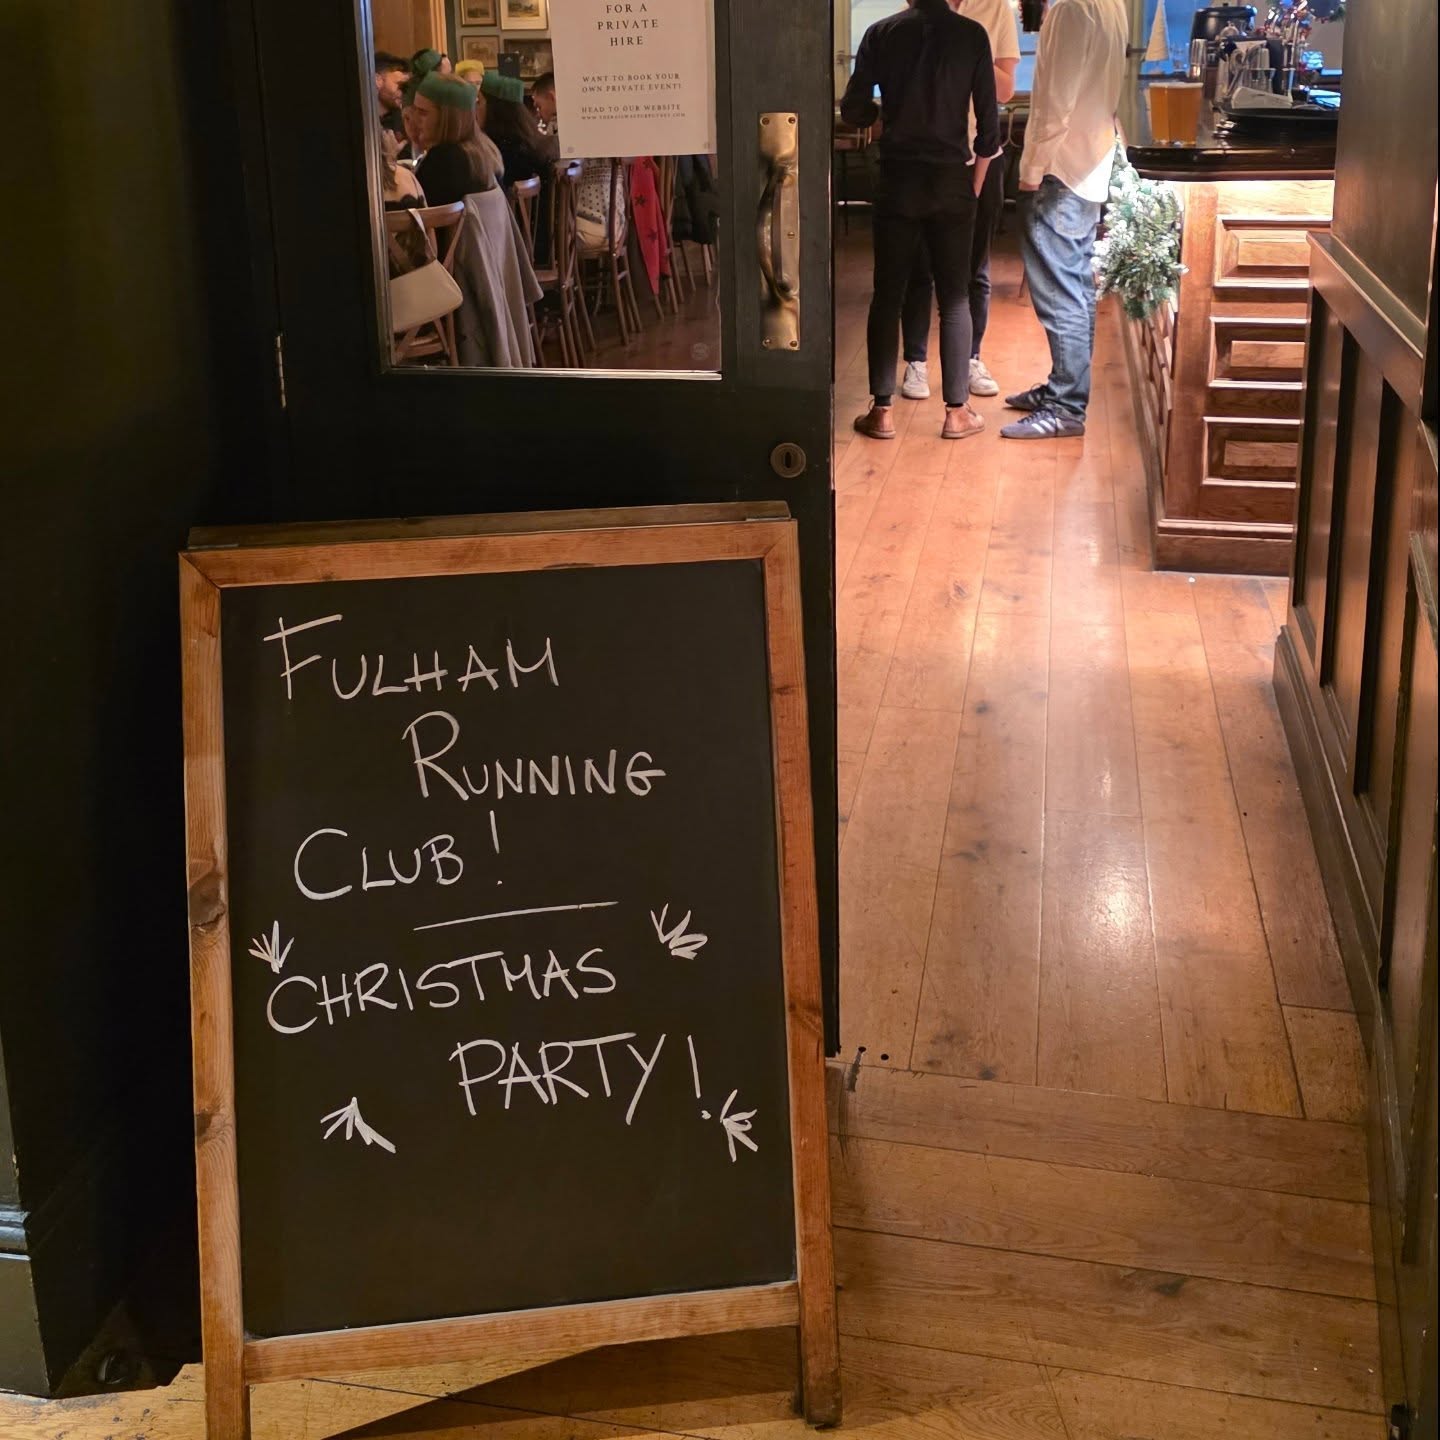 FOR A
PRIVATE
HIRE
WANT TO BOOK YOUR
OWN PRIVATE EVENT?
HEAD TO OUR WEBSITE
FULHAM
RUNNING
CLUB!
CHRISTMAS
PARTY!